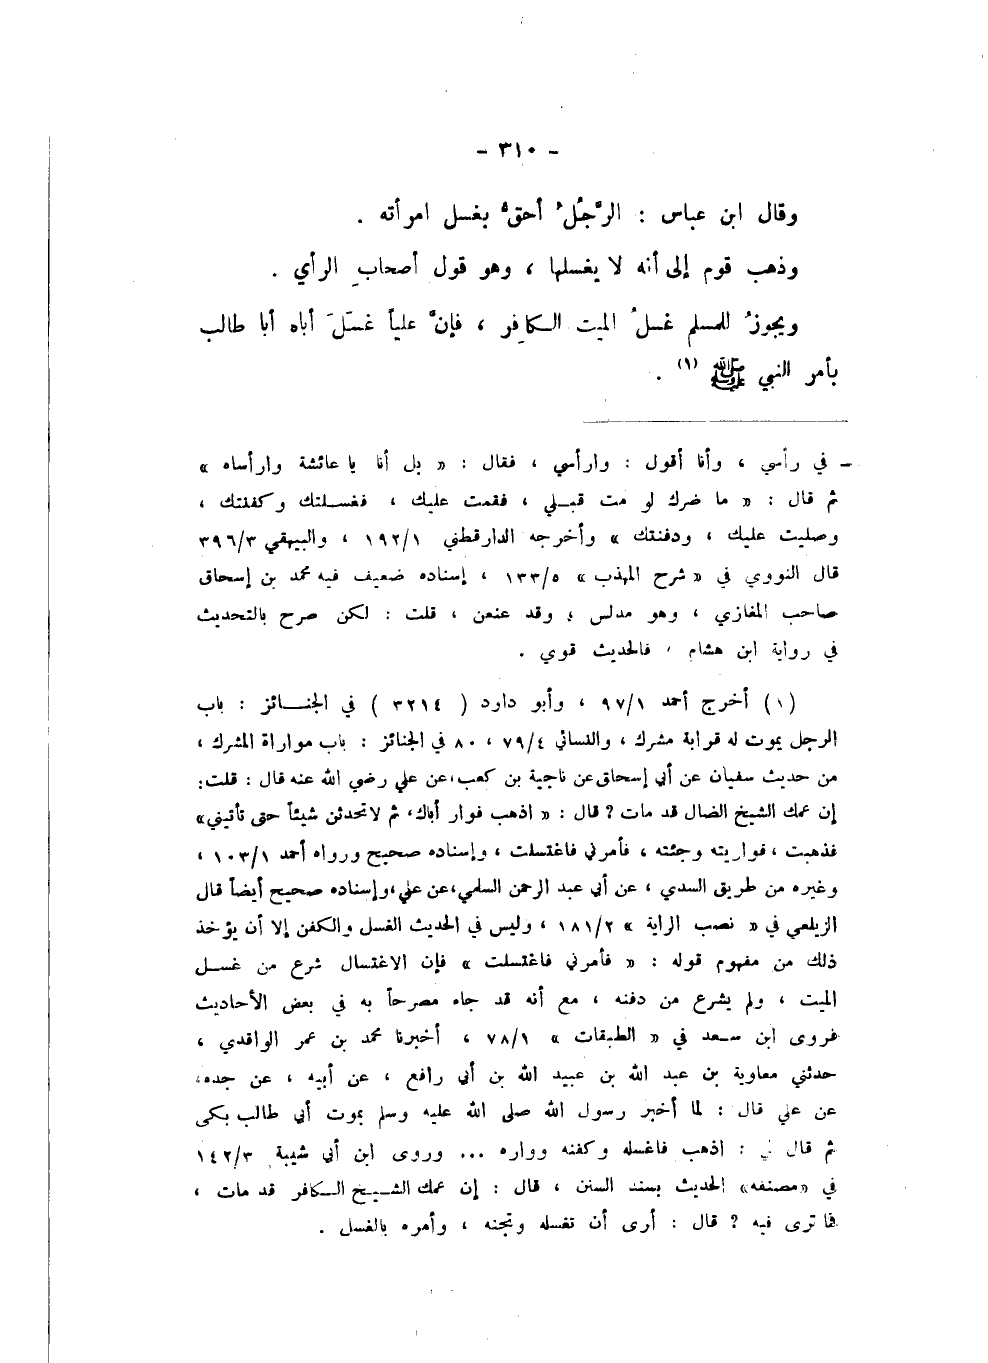 - ٣١٠ -
وقال ابن عباس : الرَّجُلُ أحقُّ بغسل امرأته .
وذهب قوم إلى أنه لا يغسلها ، وهو قول أصحابِ الرأي .
ويجوزُ للمسلم غسلُ الميت الكافِر ، فإنَّ علياً غسّلَ أباه أبا طالب
بأمر النبي ﷺ (١) .
ـ في رأسي ، وأنا أقول : وارأسي ، فقال : « بل أنا يا عائشة وارأساه »
ثم قال : « ما ضرك لو مت قبلي ، فقمت عليك ، فغسلتك وكفنتك ،
وصليت عليك ، ودفنتك » وأخرجه الدارقطني ١٩٢/١ ، والبيهقي ٣٩٦/٣
قال النووي في « شرح المهذب » ١٣٣/٥ ، إسناده ضعيف فيه محمد بن إسحاق
صاحب المغازي ، وهو مدلس ، وقد عنعن ، قلت : لكن صرح بالتحديث
في رواية ابن هشام ، فالحديث قوي .
(١) أخرج أحمد ٩٧/١ ، وأبو دارد ( ٣٢١٤ ) في الجنائز : باب
الرجل يموت له قرابة مشرك ، والنسائي ٧٩/٤ ، ٨٠ في الجنائز : باب مواراة المشرك ،
من حديث سفيان عن أبي إسحاق عن ناجية بن كعب ، عن علي رضي الله عنه قال : قلت :
إن عمك الشيخ الضال قد مات ؟ قال : « اذهب فوار أباك ، ثم لا تحدثن شيئاً حتى تأتيني »
فذهبت ، فواريته وجئته ، فأمرني فاغتسلت ، وإسناده صحيح ورواه أحمد ١٠٣/١ ،
وغيره من طريق السدي ، عن أبي عبد الرحمن السلمي ، عن علي ، وإسناده صحيح أيضاً قال
الزيلعي في « نصب الراية » ١٨١/٢ ، وليس في الحديث الغسل والكفن إلا أن يؤخذ
ذلك من مفهوم قوله : « فأمرني فاغتسلت » فإن الاغتسال شرع من غسل
الميت ، ولم يشرع من دفنه ، مع أنه قد جاء مصرحاً به في بعض الأحاديث
فروى ابن سعد في « الطبقات » ٧٨/١ ، أخبرنا محمد بن عمر الواقدي ،
حدثني معاوية بن عبد الله بن عبيد الله بن أبي رافع ، عن أبيه ، عن جده ،
عن علي قال : لما أخبر رسول الله صلى الله عليه وسلم بموت أبي طالب بكى
ثم قال لي : اذهب فاغسله وكفنه وواره ... وروى ابن أبي شيبة ١٤٢/٣
في « مصنفه » الحديث بسند السنن ، قال : إن عمك الشيخ الكافر قد مات ،
فما ترى فيه ؟ قال : أرى أن تغسله وتجنه ، وأمره بالغسل .